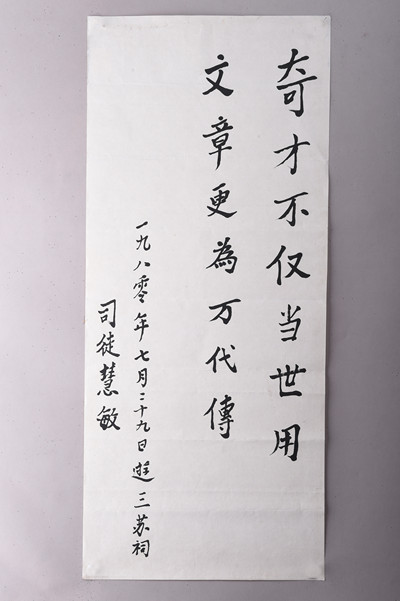 奇才不仅当世用
文章更為万代傳
一九八零年七月二十九日遊三苏祠
司徒慧敏